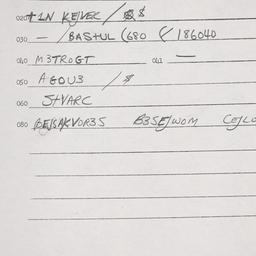 020 + IN KEJVEC / $
030 — / BASTUL (680 / 186040
040 M3TROGT 041 —
050 AGOU3 / $
060 STVARC
080 B3SEJWOM